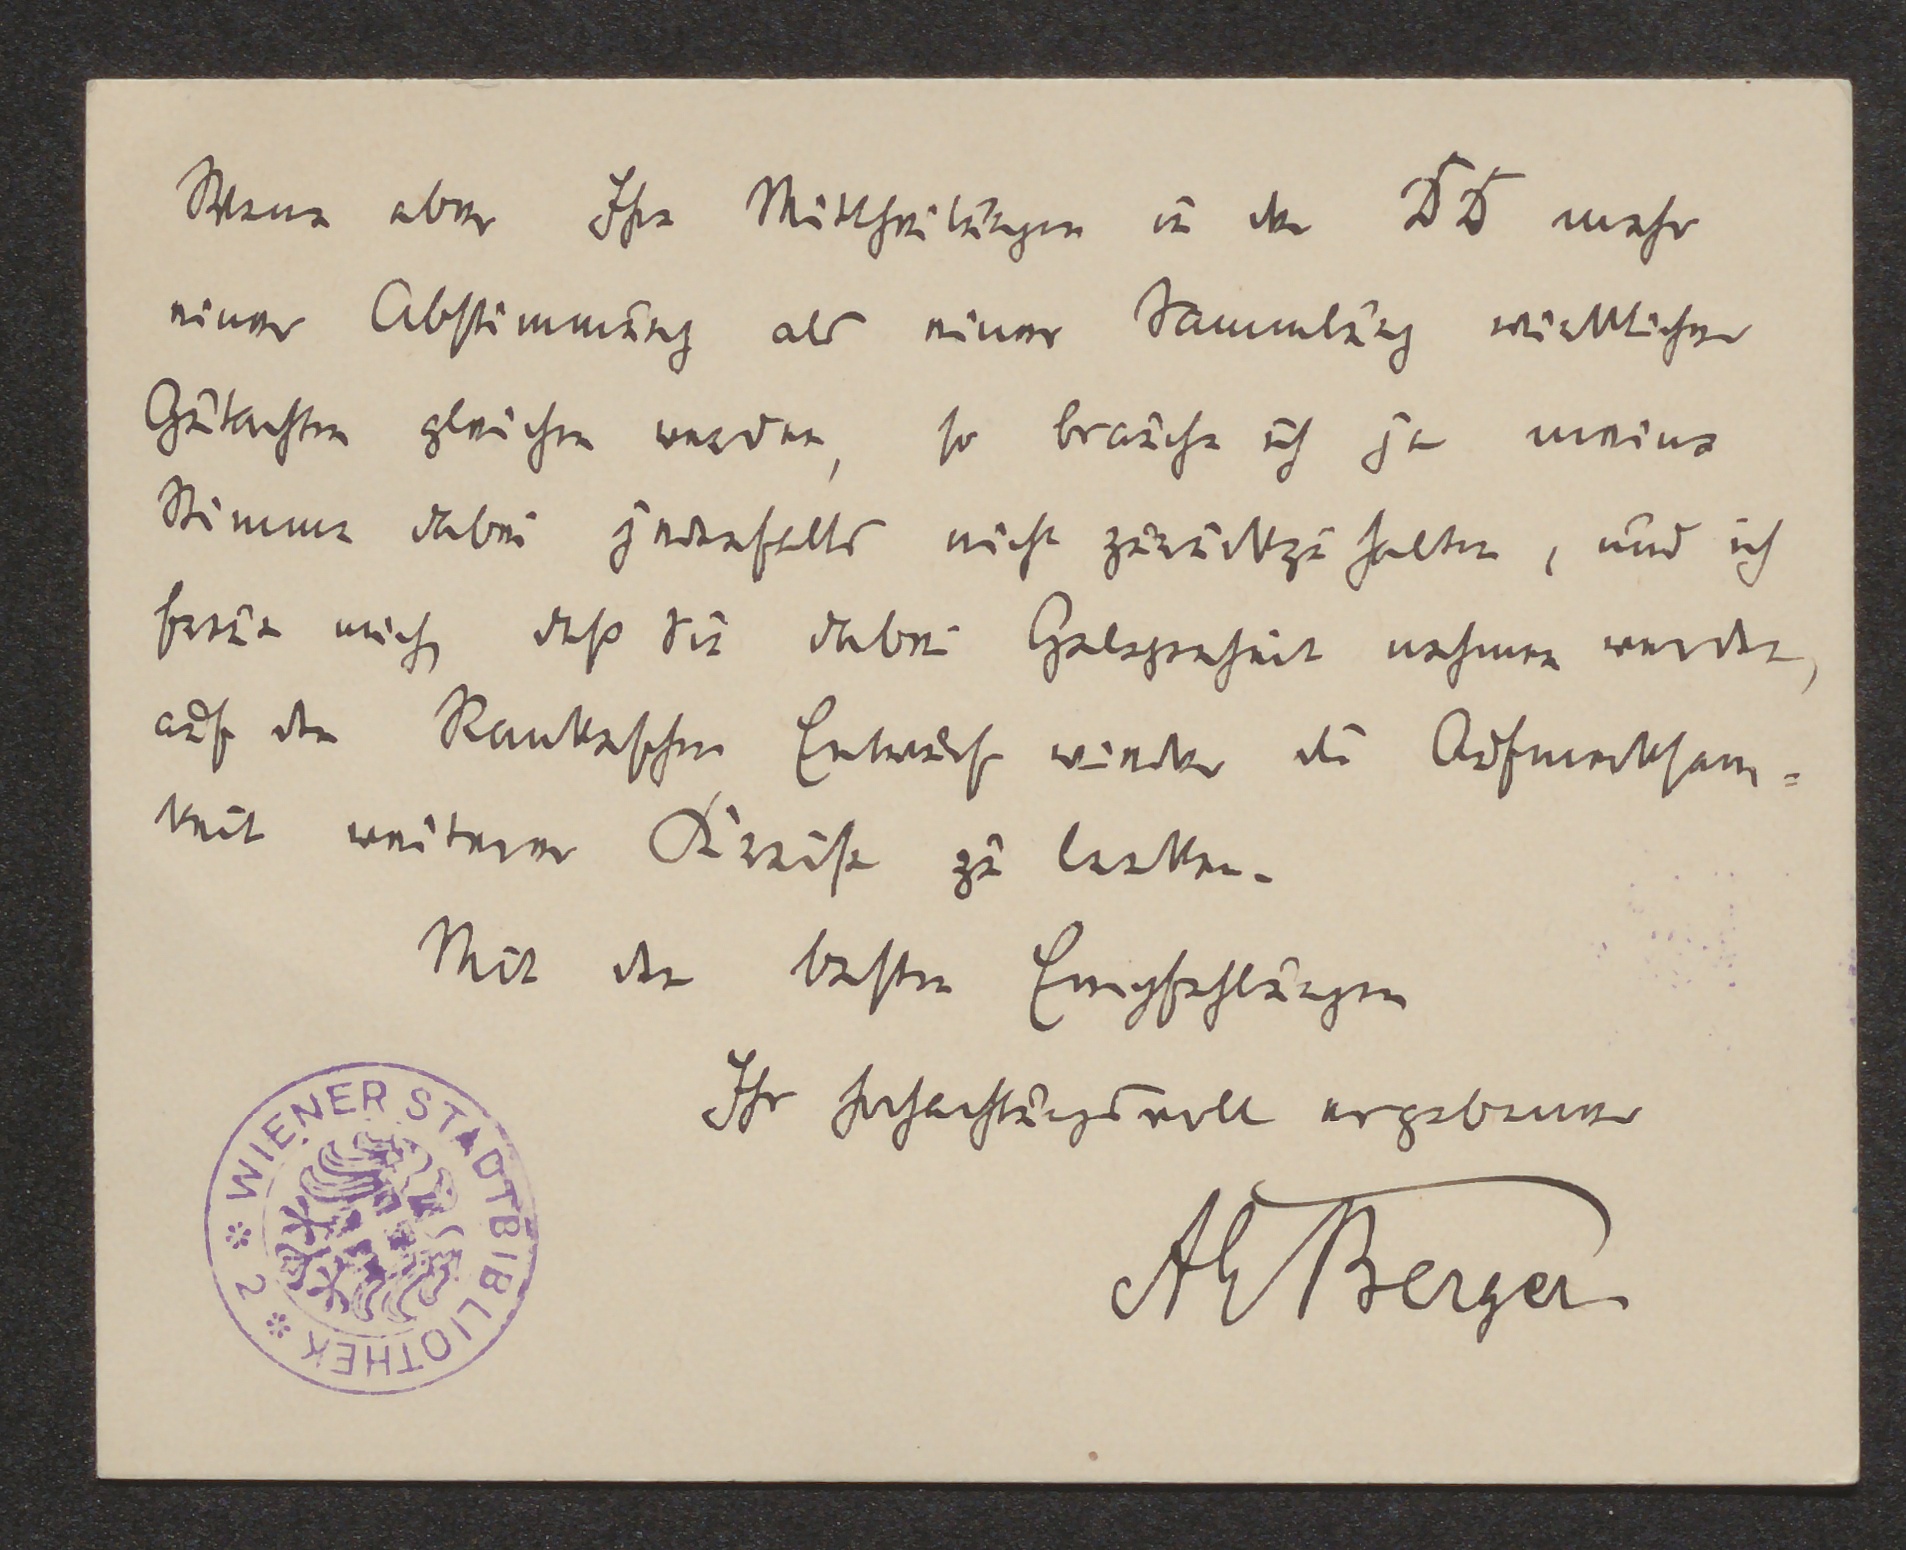 Wenn aber Ihre Mittheilungen in den DD mehr
einer Abstimmung als einer Sammlung wirklicher
Gutachten gleichen werden, so brauche ich ja meine
Stimme dabei jedenfalls nicht zurückzuhalten, und ich
freue mich, daß Sie dabei Gelegenheit nehmen werden,
auf den Rankeschen Entwurf wieder die Aufmerksam=
keit weiterer Kreise zu lenken.
Mit den besten Empfehlungen
Ihr hochachtungsvoll ergebener
AE Berger
WIENER STADTBIBLIOTHEK * 2 *